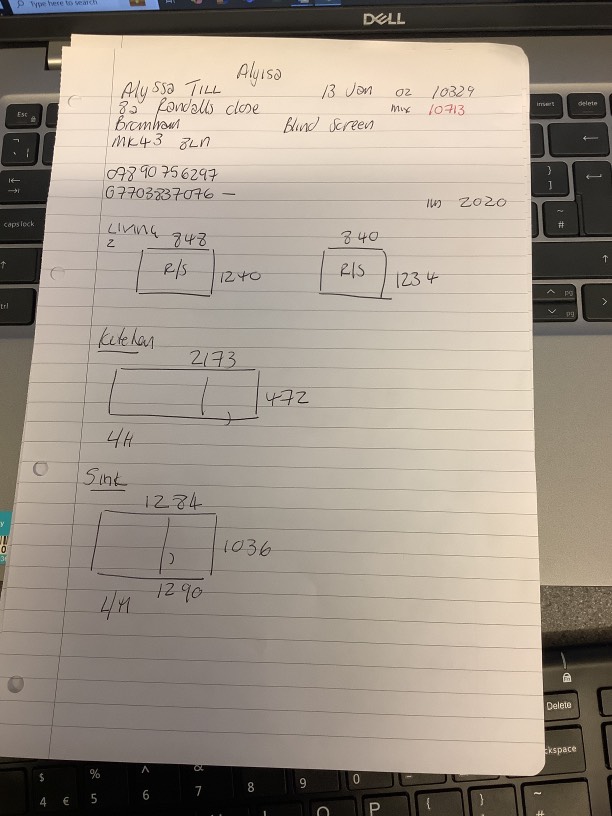 Type here to search
DELL
Alyisa
Alyssa TILL 13 Jan 02 10329
82 Randalls close Mix 10713
Bromham Blind Screen
MK43 8LN
07890756297
07703837076 —
2020
Living
2
848
R/S 1240
840
R/S 1234
Kitchen
2173
472
4/H
Sink
1284
1036
1290
4/H
Esc
caps lock
insert delete
pg
pg
Delete
ckspace
$ % ^ &
4 € 5 6 7 8 9 0
O P { }